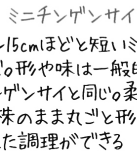 ミニチンゲンサイ
~15cmほどと短いミ
ど。形や味は一般的
ゲンサイと同じ。柔
株のまま丸ごと形
た調理ができる